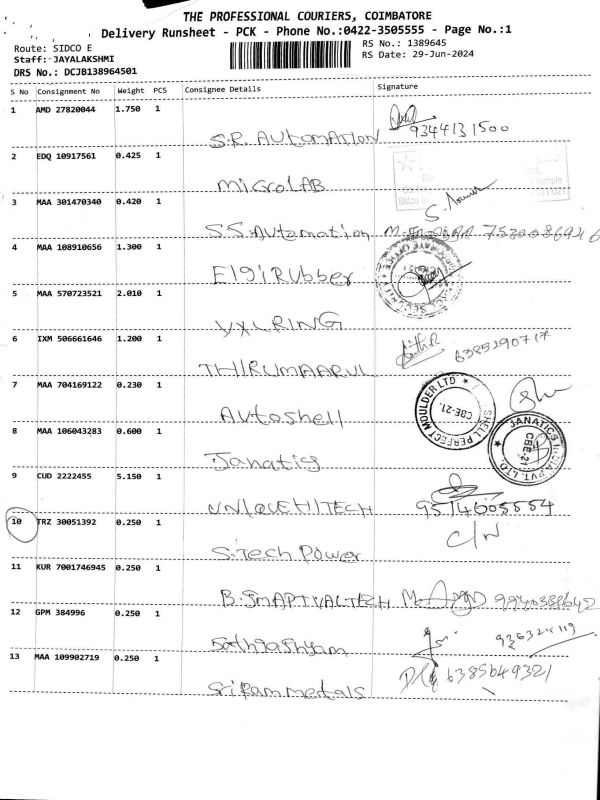 THE PROFESSIONAL COURIERS, COIMBATORE
Delivery Runsheet - PCK - Phone No.:0422-3505555 - Page No.:1
Route: SIDCO E
RS No.: 1389645
Staff: JAYALAKSHMI
RS Date: 29-Jun-2024
DRS No.: DCJB138964501
S No Consignment No Weight PCS Consignee Details Signature
1 AMD 27820044 1.750 1
S.R. AutomATION 9344131500
2 EDQ 10917561 0.425 1
MicroLAB
3 MAA 301470340 0.420 1
S.S. Automation
4 MAA 108910656 1.300 1
Elgi Rubber
5 MAA 570723521 2.010 1
VXL RING
6 IXM 506661646 1.200 1
THIRUMAARUL 6385290717
7 MAA 704169122 0.230 1
Autoshell
SHELL PERFECT MOULDER LTD
CBE-21.
8 MAA 106043283 0.600 1
Janatics
JANATICS INDIA PVT. LTD.
CBE-21
9 CUD 2222455 5.150 1
UNIQUE HITECH 9514605554
10 TRZ 30051392 0.250 1
C/N
S.Tech Power
11 KUR 7001746945 0.250 1
12 GPM 384996 0.250 1
Sathyashyam
13 MAA 109902719 0.250 1
6385649321
Sri Ram metals